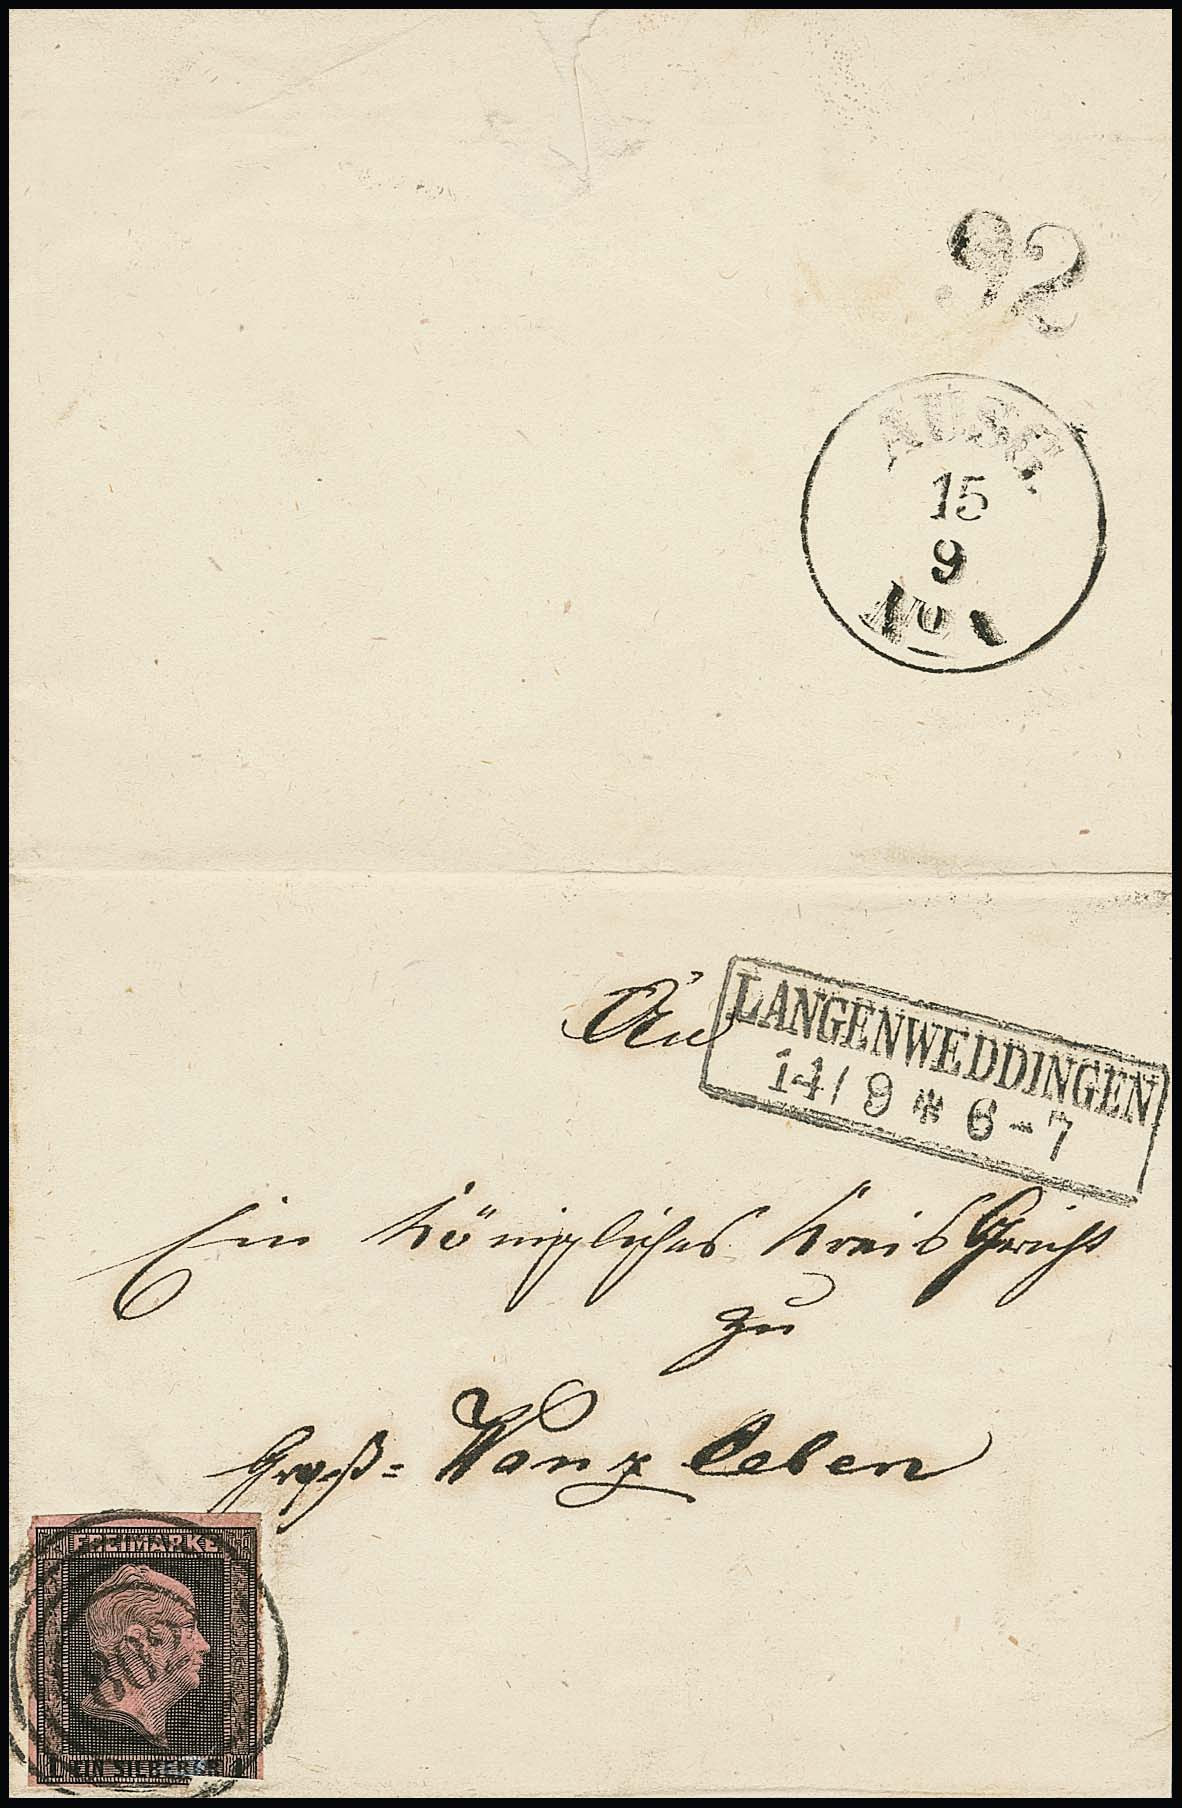 92
AUSG.
15
9
No 1
LANGENWEDDINGEN
14/9 * 6-7
An
Ein Königliches Kreis Gericht
zu
Groß= Wanzleben
FREIMARKE
802
1 EIN SILBERGR. 1